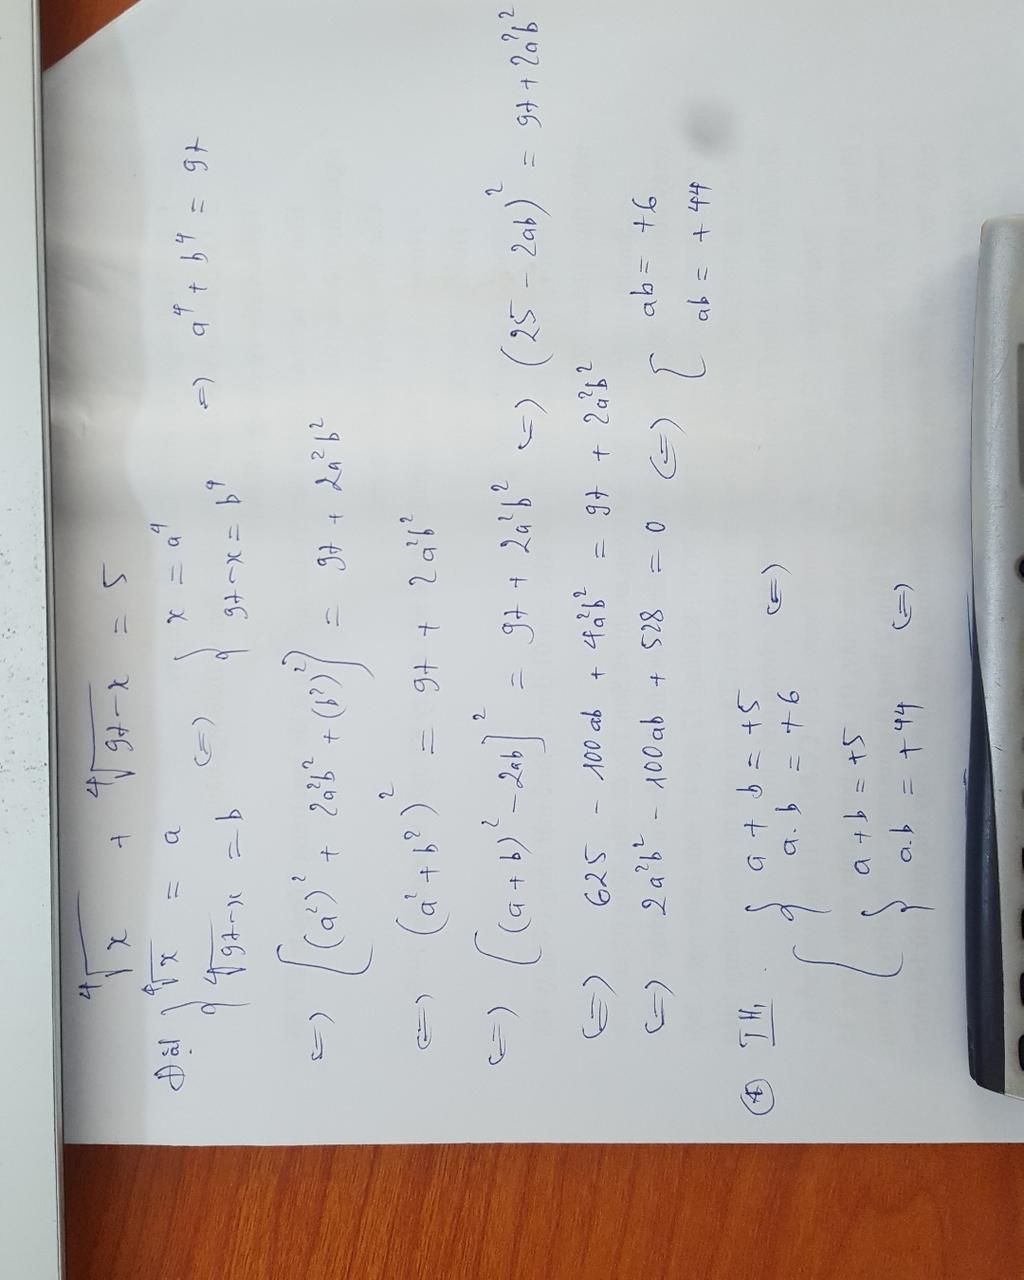 ⁴√x + ⁴√97-x = 5
Đặt { ⁴√x = a ⇔ { x = a⁴ ⇒ a⁴ + b⁴ = 97
{ ⁴√97-x = b { 97-x = b⁴
⇔ [(a²)² + 2a²b² + (b²)²] = 97 + 2a²b²
⇔ (a² + b²)² = 97 + 2a²b²
⇔ [(a + b)² - 2ab]² = 97 + 2a²b² ⇔ (25 - 2ab)² = 97 + 2a²b²
⇔ 625 - 100ab + 4a²b² = 97 + 2a²b²
⇔ 2a²b² - 100ab + 528 = 0 ⇔ [ ab = +6
ab = + 44
⊛ TH₁ [ { a + b = +5 ⇔
a.b = +6
{ a + b = +5 ⇔
a.b = +44